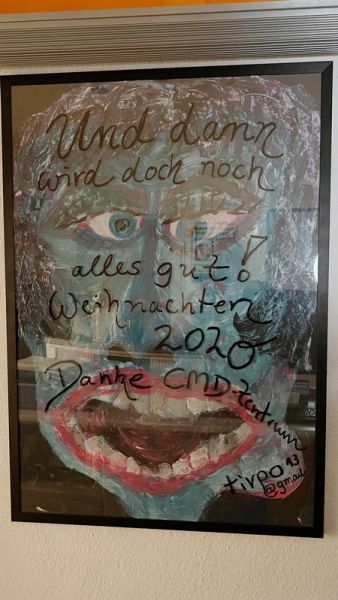 Und dann
wird doch noch
alles gut!
Weihnachten
2020
Danke CMD-Zentrum
tivpo13
@gmail